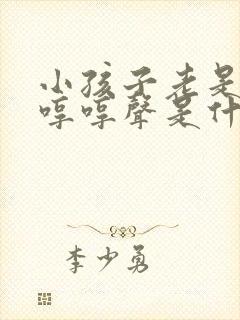 小孩子老是
哼哼聲是什
李少勇